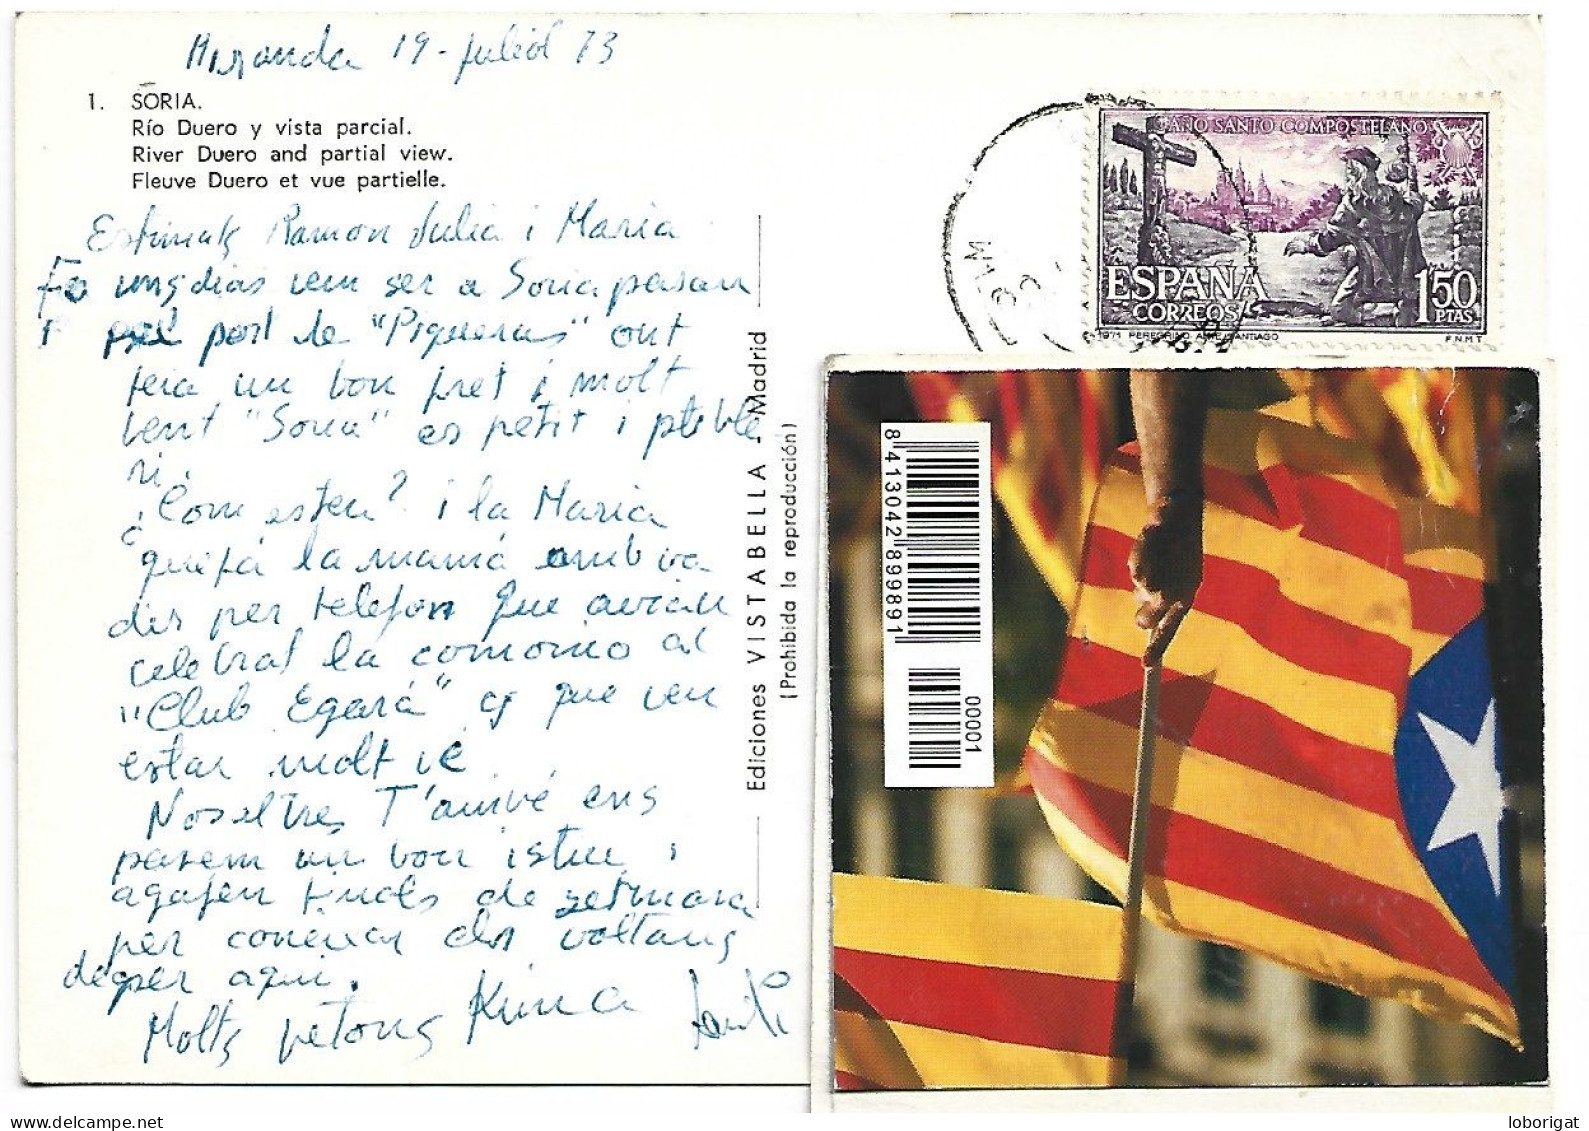 Miranda 19-juliol 73
1. SORIA.
Río Duero y vista parcial.
River Duero and partial view.
Fleuve Duero et vue partielle.
Estimats Ramon Julia i Maria
Fa uns dias vem ser a Soria pasan
pel port de "Piqueras" ont
feia un bon fret i molt
vent "Soria" es petit i poble
ri.
¿Com esteu? i la Maria
que fá la mamá em va
dir per telefon que avian
celebrat la comonio al
"Club Egará" es que ven
estar molt vé
Noseltres T'amvé ens
pasem un bon istiu i
agafen finals de setmana
per coneixer els voltans
de per aqui.
Molts petons Kima
Ediciones VISTABELLA - Madrid
(Prohibida la reproducción)
AÑO SANTO COMPOSTELANO
ESPAÑA
CORREOS
1'50
PTAS
1971 PEREGRINO ANTE SANTIAGO
F.N.M.T
8413042899891
00001
loborigat